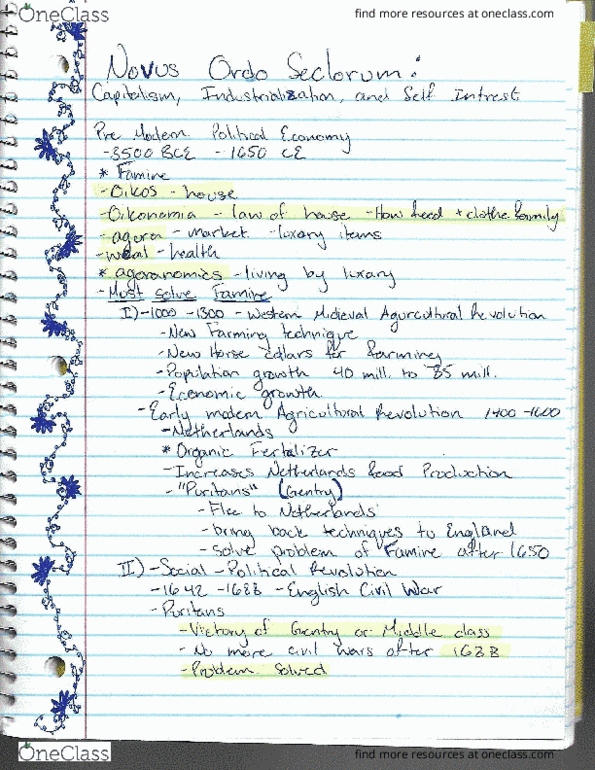 OneClass
find more resources at oneclass.com
Novus Ordo Seclorum:
Capitalism, Industrialization, and Self Intrest
Pre Modern Political Economy
-3500 BCE - 1650 CE
* Famine
- Oikos - house
- Oikonomia - law of house - How feed + clothe family
- agora - market - luxary items
- weal - health
* agoranomics - living by luxary
- Must solve Famine
I) -1000 -1300 - Western Midieval Agurcultural Revolution
- New Farming technique
- New Horse collars for farming
- Population growth 40 mill. to 85 mill.
- Economic growth
- Early modern Agricultural Revolution 1400 -1600
- Netherlands
* Organic Fertalizer
- Increases Netherlands food Production
- "Puritans" (Gentry)
- Flee to Netherlands
- bring back techniques to England
- solve problem of Famine after 1650
II) - Social - Political Revolution
- 1642 - 1688 - English Civil War
- Puritans
- Victory of Gentry or Middle class
- No more civil wars after 1688
- Problem Solved
OneClass
find more resources at oneclass.com